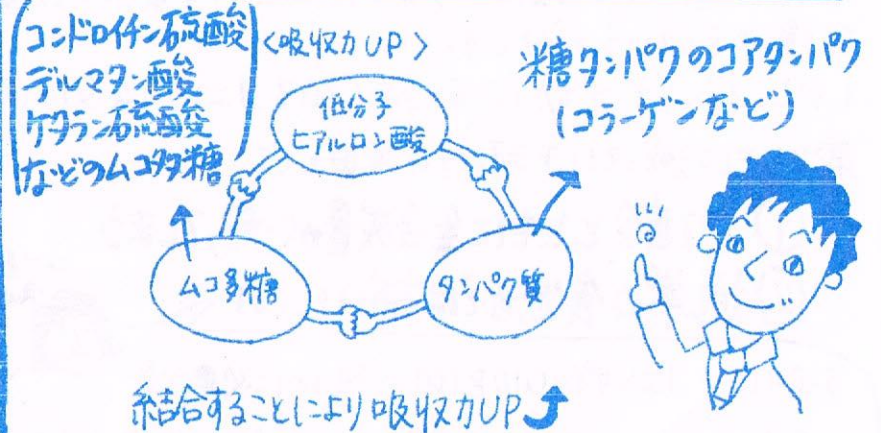 コンドロイチン硫酸
デルマタン酸
ケタラン硫酸
などのムコ多糖
〈吸収力UP〉
低分子
ヒアルロン酸
糖タンパクのコアタンパク
(コラーゲンなど)
ムコ多糖
タンパク質
結合することにより吸収力UP